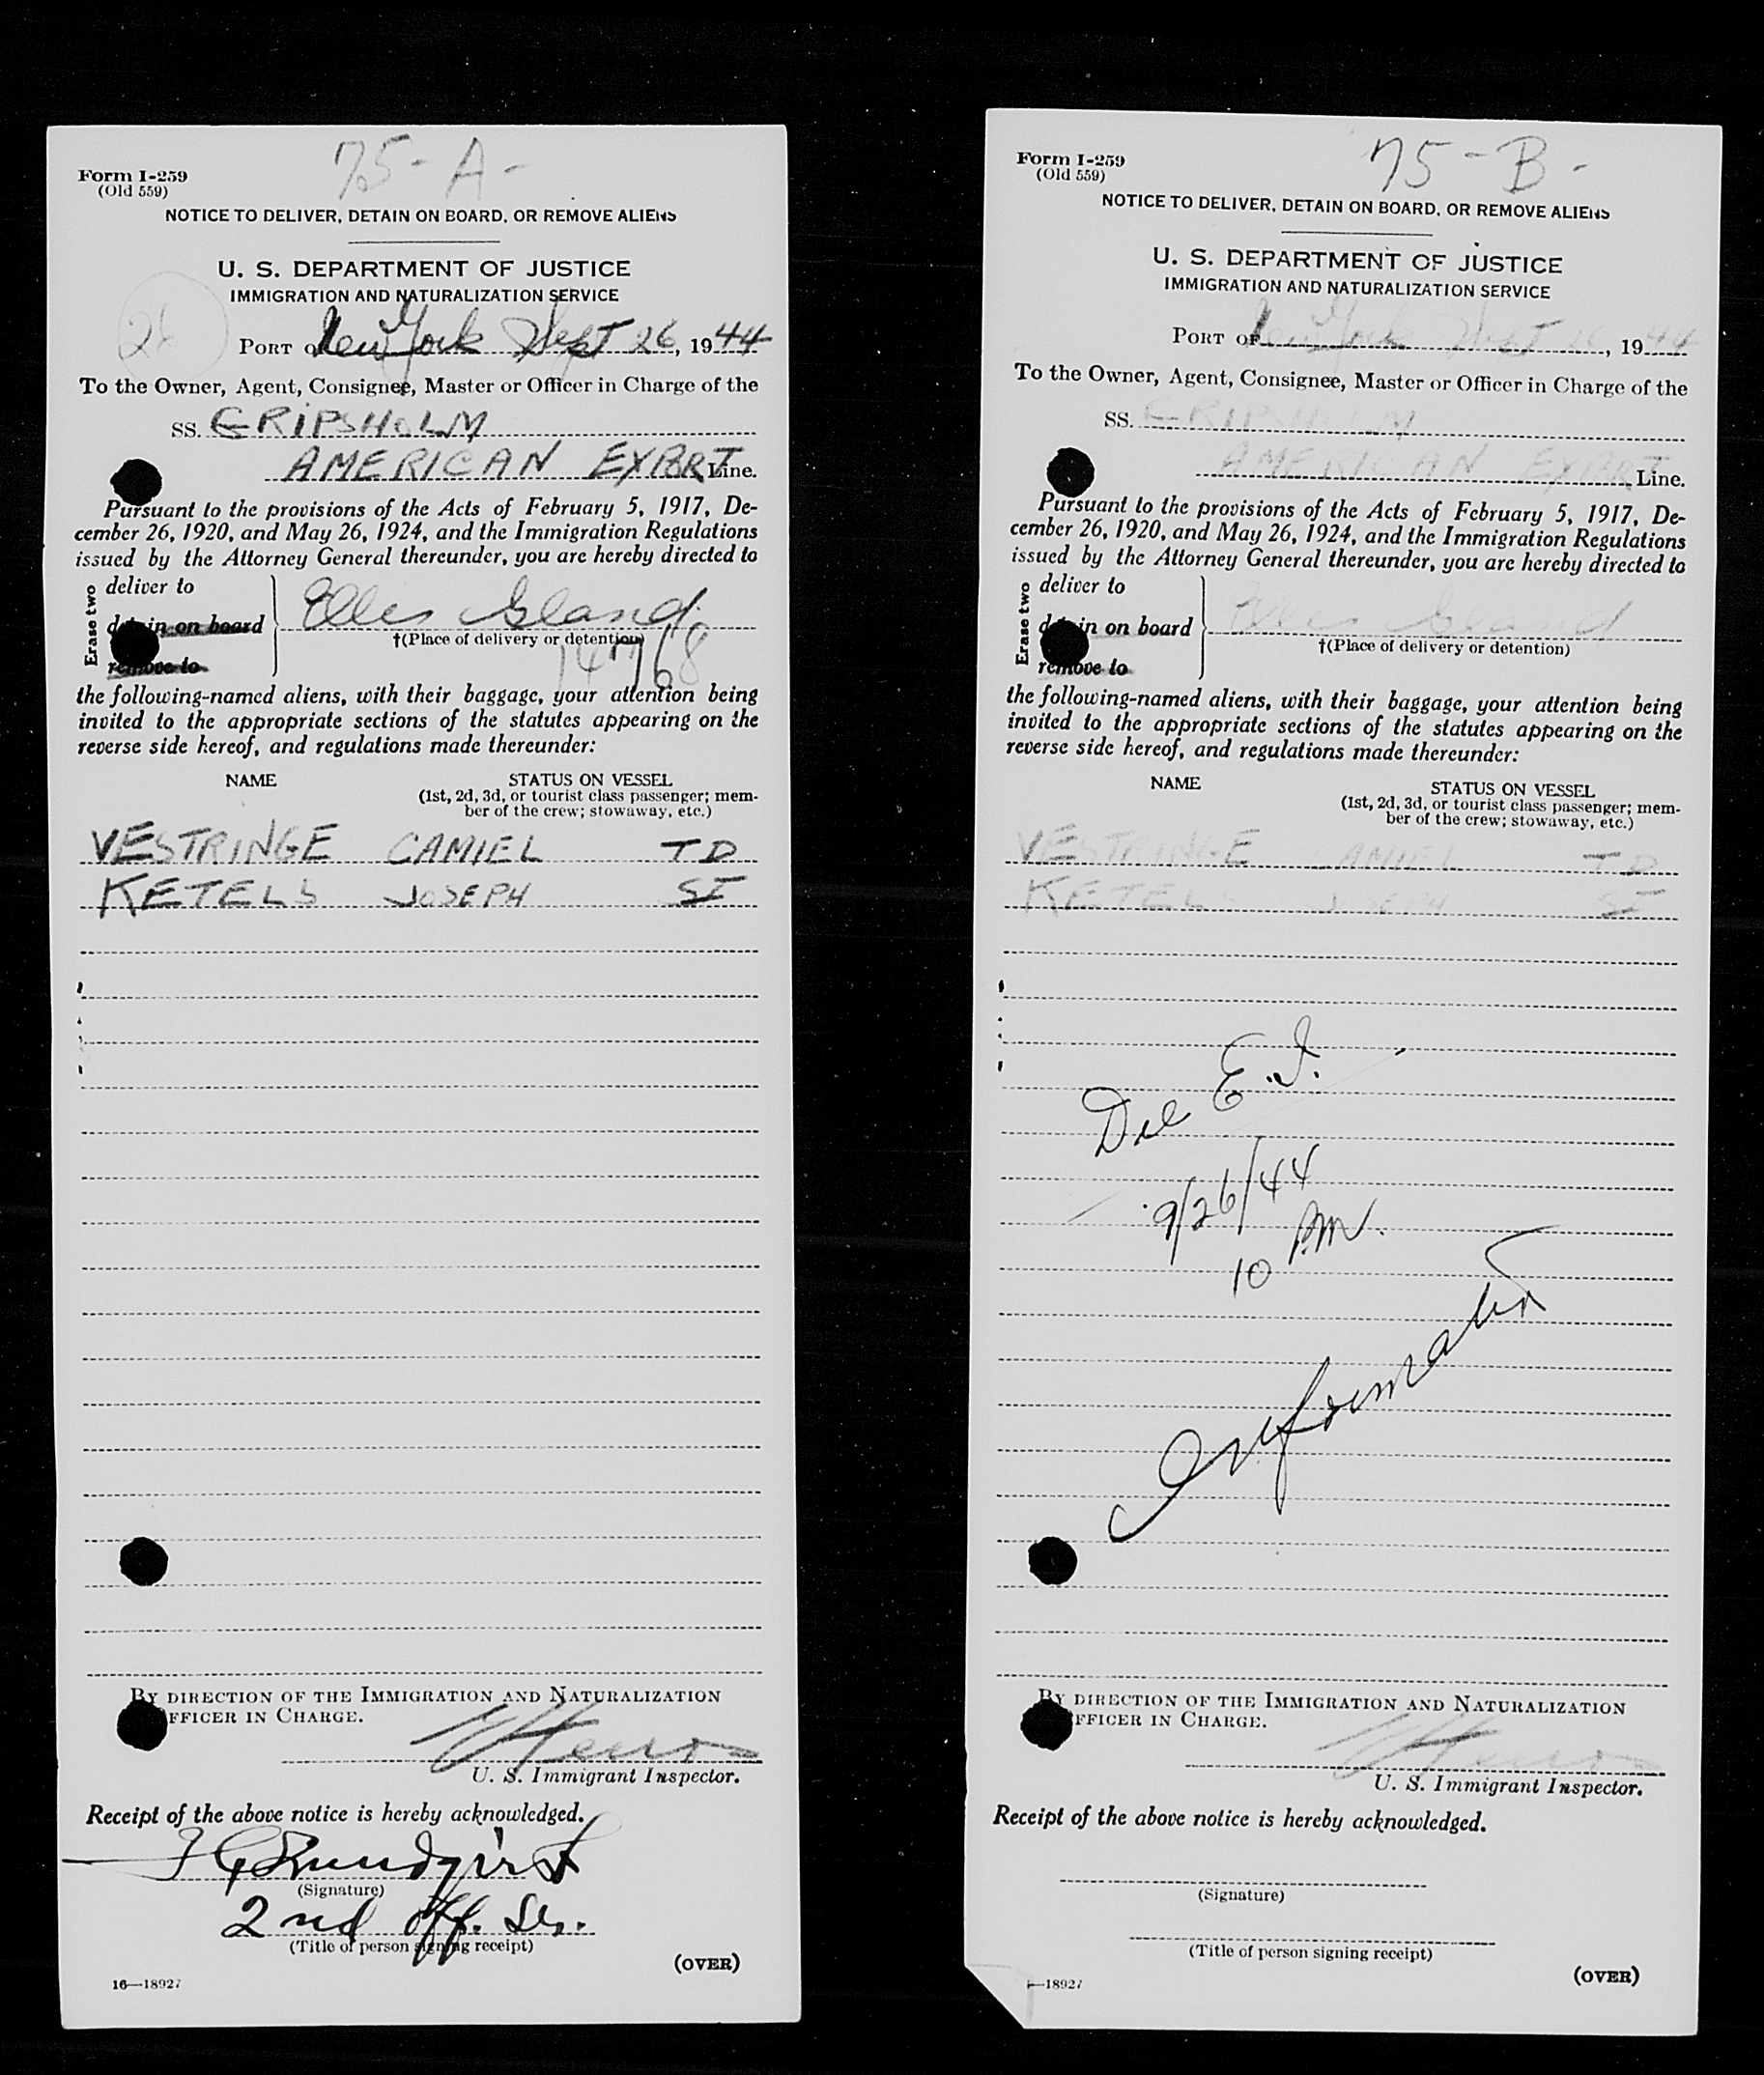 75-A-
Form I-259
(Old 559)
NOTICE TO DELIVER, DETAIN ON BOARD, OR REMOVE ALIENS
U. S. DEPARTMENT OF JUSTICE
IMMIGRATION AND NATURALIZATION SERVICE
26
PORT OF New York Sept 26, 1944
To the Owner, Agent, Consignee, Master or Officer in Charge of the
SS. GRIPSHOLM
AMERICAN EXPORT Line.
Pursuant to the provisions of the Acts of February 5, 1917, De-
cember 26, 1920, and May 26, 1924, and the Immigration Regulations
issued by the Attorney General thereunder, you are hereby directed to
Erase two
deliver to
detain on board
remove to
Ellis Island
†(Place of delivery or detention)
14768
the following-named aliens, with their baggage, your attention being
invited to the appropriate sections of the statutes appearing on the
reverse side hereof, and regulations made thereunder:
NAME STATUS ON VESSEL
(1st, 2d, 3d, or tourist class passenger; mem-
ber of the crew; stowaway, etc.)
VESTRINGE CAMIEL TD
KETELS JOSEPH SI
BY DIRECTION OF THE IMMIGRATION AND NATURALIZATION
OFFICER IN CHARGE.
U. S. Immigrant Inspector.
Receipt of the above notice is hereby acknowledged.
(Signature)
2nd Off.
(Title of person signing receipt)
(OVER)
16—18927
75-B-
Form I-259
(Old 559)
NOTICE TO DELIVER, DETAIN ON BOARD, OR REMOVE ALIENS
U. S. DEPARTMENT OF JUSTICE
IMMIGRATION AND NATURALIZATION SERVICE
PORT OF New York Sept 26, 1944
To the Owner, Agent, Consignee, Master or Officer in Charge of the
SS. GRIPSHOLM
AMERICAN EXPORT Line.
Pursuant to the provisions of the Acts of February 5, 1917, De-
cember 26, 1920, and May 26, 1924, and the Immigration Regulations
issued by the Attorney General thereunder, you are hereby directed to
Erase two
deliver to
detain on board
remove to
Ellis Island
†(Place of delivery or detention)
the following-named aliens, with their baggage, your attention being
invited to the appropriate sections of the statutes appearing on the
reverse side hereof, and regulations made thereunder:
NAME STATUS ON VESSEL
(1st, 2d, 3d, or tourist class passenger; mem-
ber of the crew; stowaway, etc.)
VESTRINGE CAMIEL TD
KETELS JOSEPH SI
Del E.I.
9/26/44
10 PM.
BY DIRECTION OF THE IMMIGRATION AND NATURALIZATION
OFFICER IN CHARGE.
U. S. Immigrant Inspector.
Receipt of the above notice is hereby acknowledged.
(Signature)
(Title of person signing receipt)
(OVER)
—18927